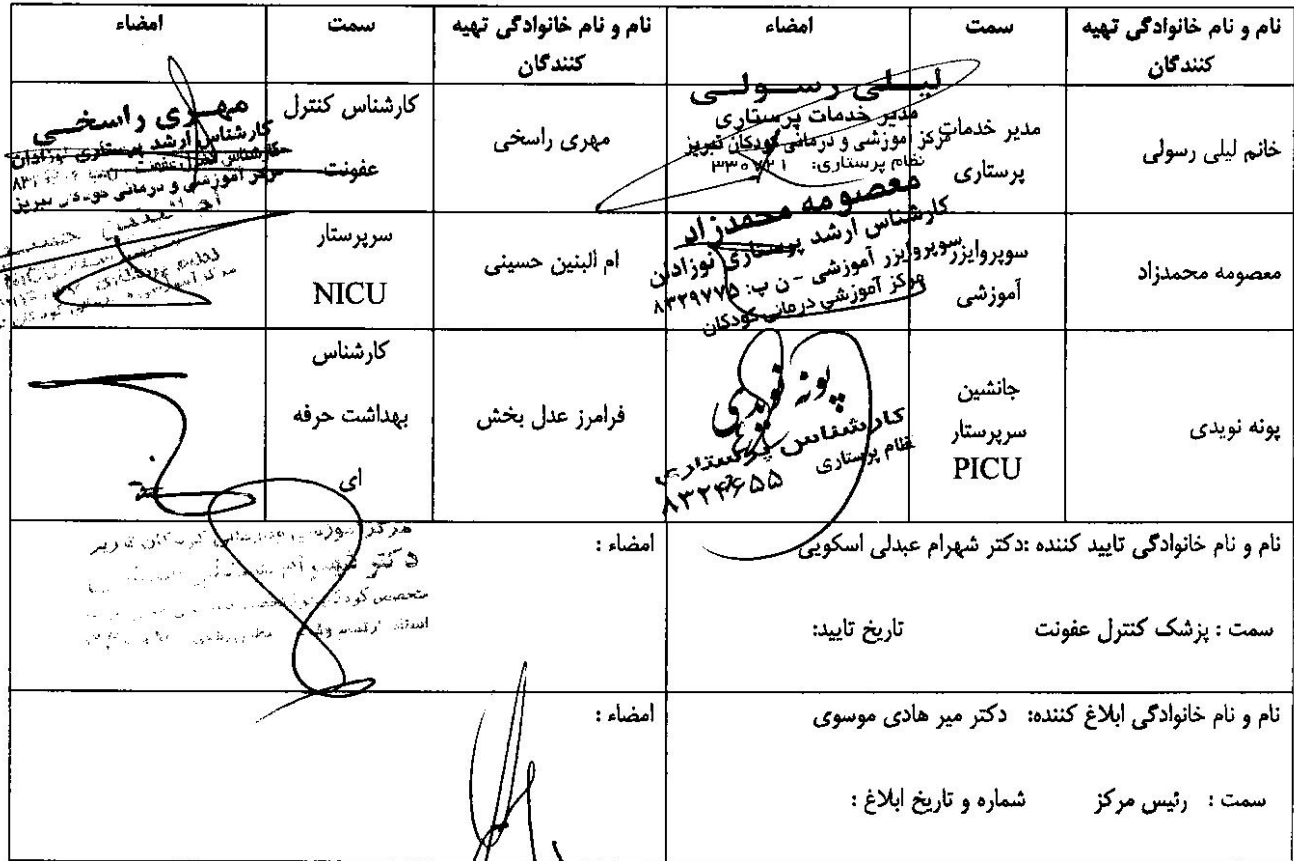 نام و نام خانوادگی تهیه کنندگان
سمت
امضاء
نام و نام خانوادگی تهیه کنندگان
سمت
امضاء
خانم لیلی رسولی
مدیر خدمات
پرستاری
لیلی رسولی
مدیر خدمات پرستاری
مرکز آموزشی و درمانی کودکان تبریز
نظام پرستاری: ۳۳۰۷۲۱
مهری راسخی
کارشناس کنترل
عفونت
مهری راسخی
کارشناس ارشد پرستاری نوزادان
کارشناس کنترل عفونت
مرکز آموزشی و درمانی کودکان تبریز
معصومه محمدزاد
سوپروایزر
آموزشی
معصومه محمدزاد
کارشناس ارشد پرستاری نوزادان
سوپروایزر آموزشی - ن پ: ۸۳۲۹۷۷۵
مرکز آموزشی درمانی کودکان
ام البنین حسینی
سرپرستار
NICU
پونه نویدی
جانشین
سرپرستار
PICU
پونه نویدی
کارشناس پرستاری
نظام پرستاری
۸۳۲۴۶۵۵
فرامرز عدل بخش
کارشناس
بهداشت حرفه
ای
نام و نام خانوادگی تایید کننده :دکتر شهرام عبدلی اسکویی
سمت : پزشک کنترل عفونت تاریخ تایید:
امضاء :
مرکز آموزشی درمانی کودکان تبریز
دکتر
متخصص کودکان
استاد
نام و نام خانوادگی ابلاغ کننده: دکتر میر هادی موسوی
سمت : رئیس مرکز شماره و تاریخ ابلاغ :
امضاء :